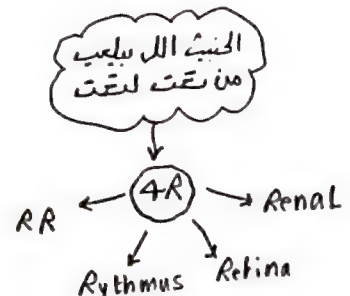 الخبيث اللي بيلعب
من تحت لتحت
4R
RR
Renal
Rythmus
Retina